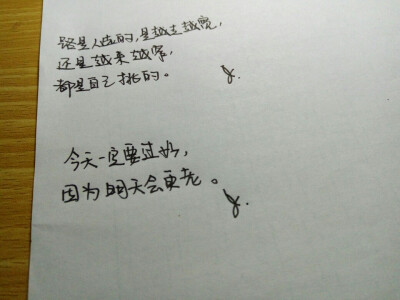 路是人选的,是越走越宽,
还是越来越窄,
都是自己挑的。
今天一定要过好,
因为明天会更老。